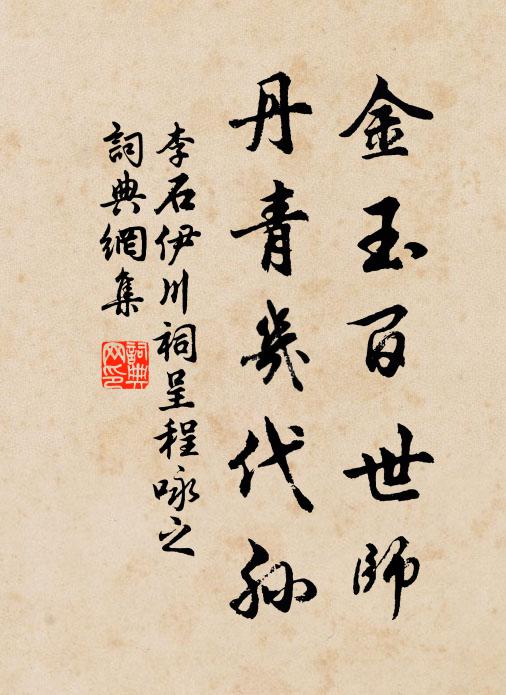 金玉百世師
丹青幾代孫
李石伊川祠呈程咏之
詞典網集
詞典網印